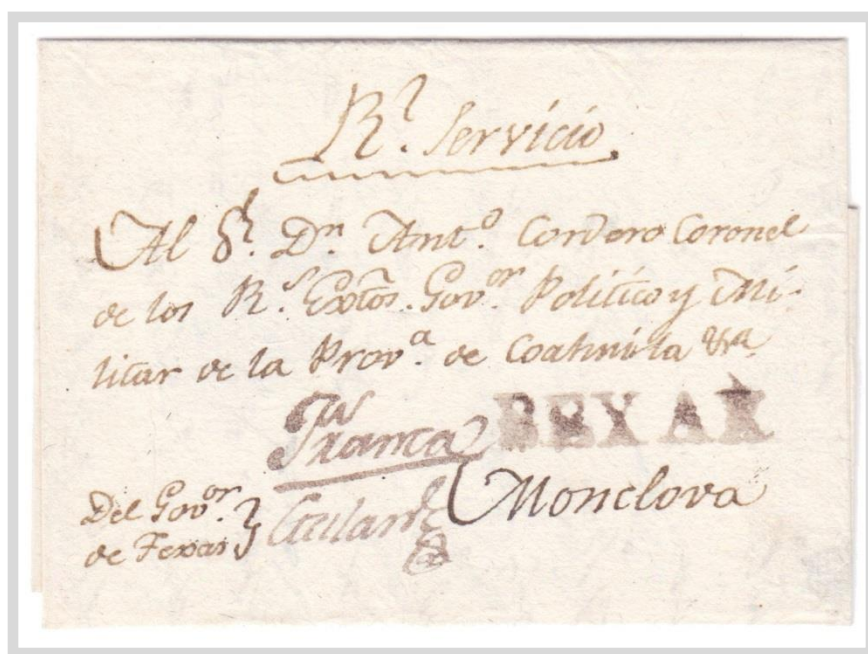 Rl. Servicio
Al Sr. Dn. Anto. Cordero Coronel
de los Rs. Extos. Govor. Politico y Mi-
litar de la Prova. de Coahuila &a.
Franca BEXAR
Del Govor. de Texas Monclova